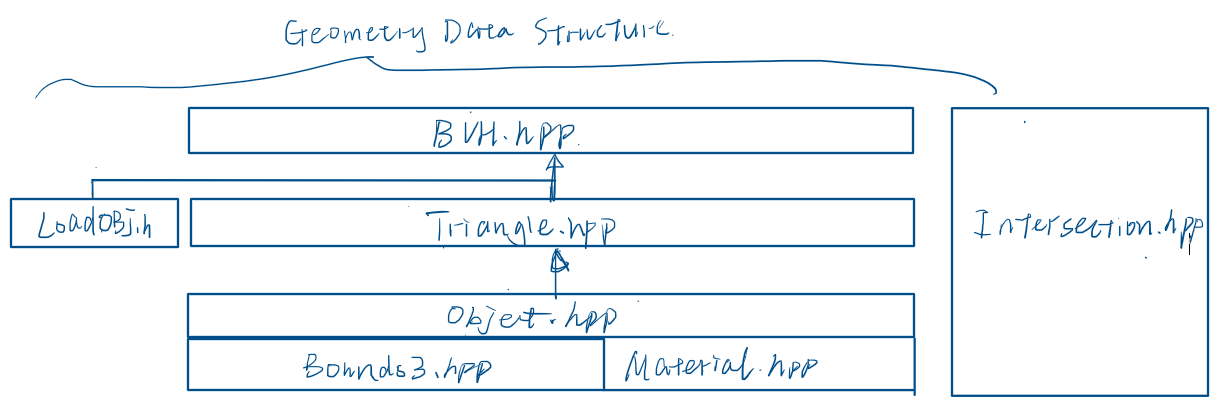 Geometry Data Structure.
BVH.hpp.
LoadOBJ.h
Triangle.hpp
Intersection.hpp
Object.hpp
Bounds3.hpp
Material.hpp